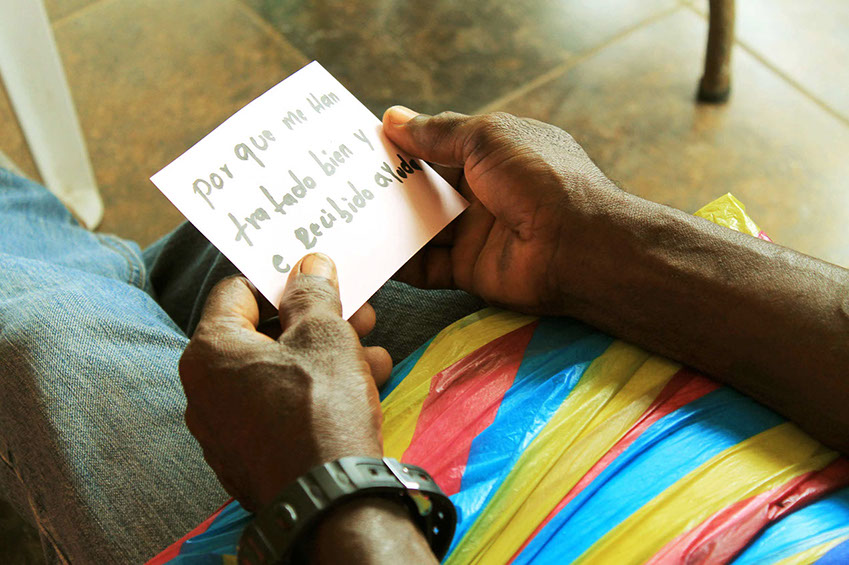 por que me Han
tratado bien y
e recibido ayuda